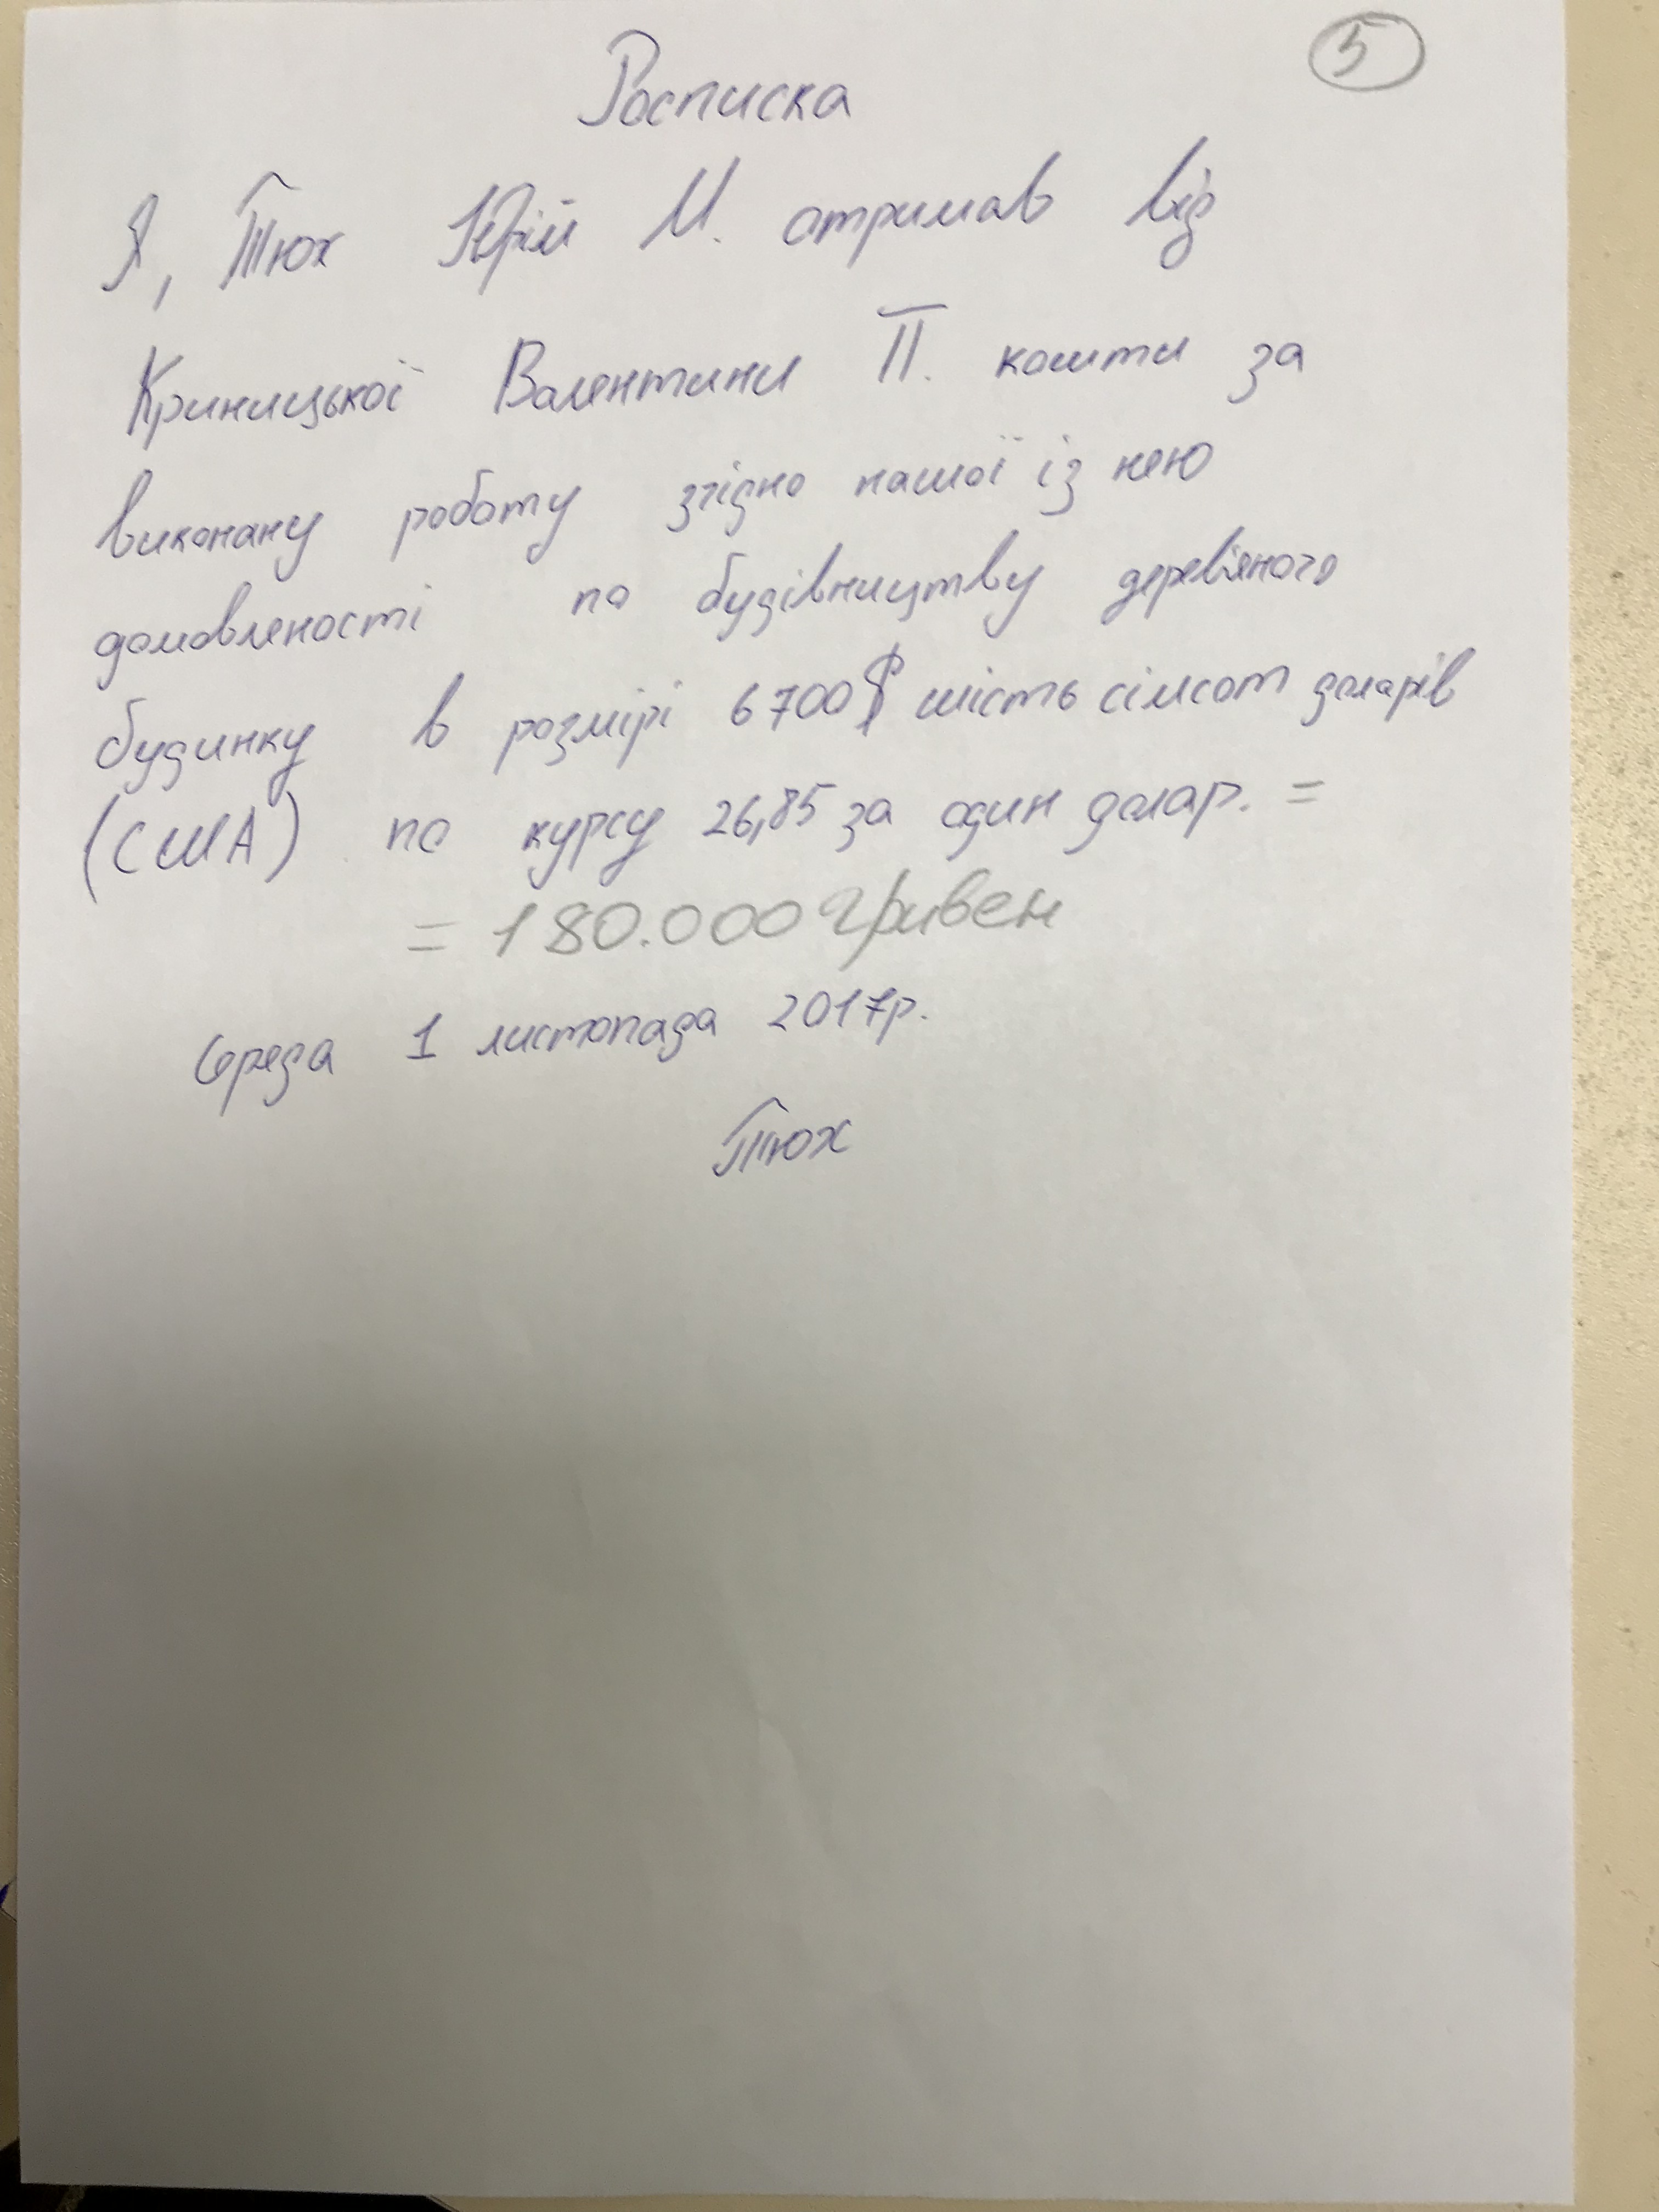 5
Росписка
Я, Тюх Юрій М. отримав від
Криницької Валентини П. кошти за
виконану роботу згідно нашої із нею
домовленості по будівництву дерев'яного
будинку в розмірі 6700$ шість сімсот доларів
(США) по курсу 26,85 за один долар. =
= 180.000 гривен
Середа 1 листопада 2017р.
Тюх